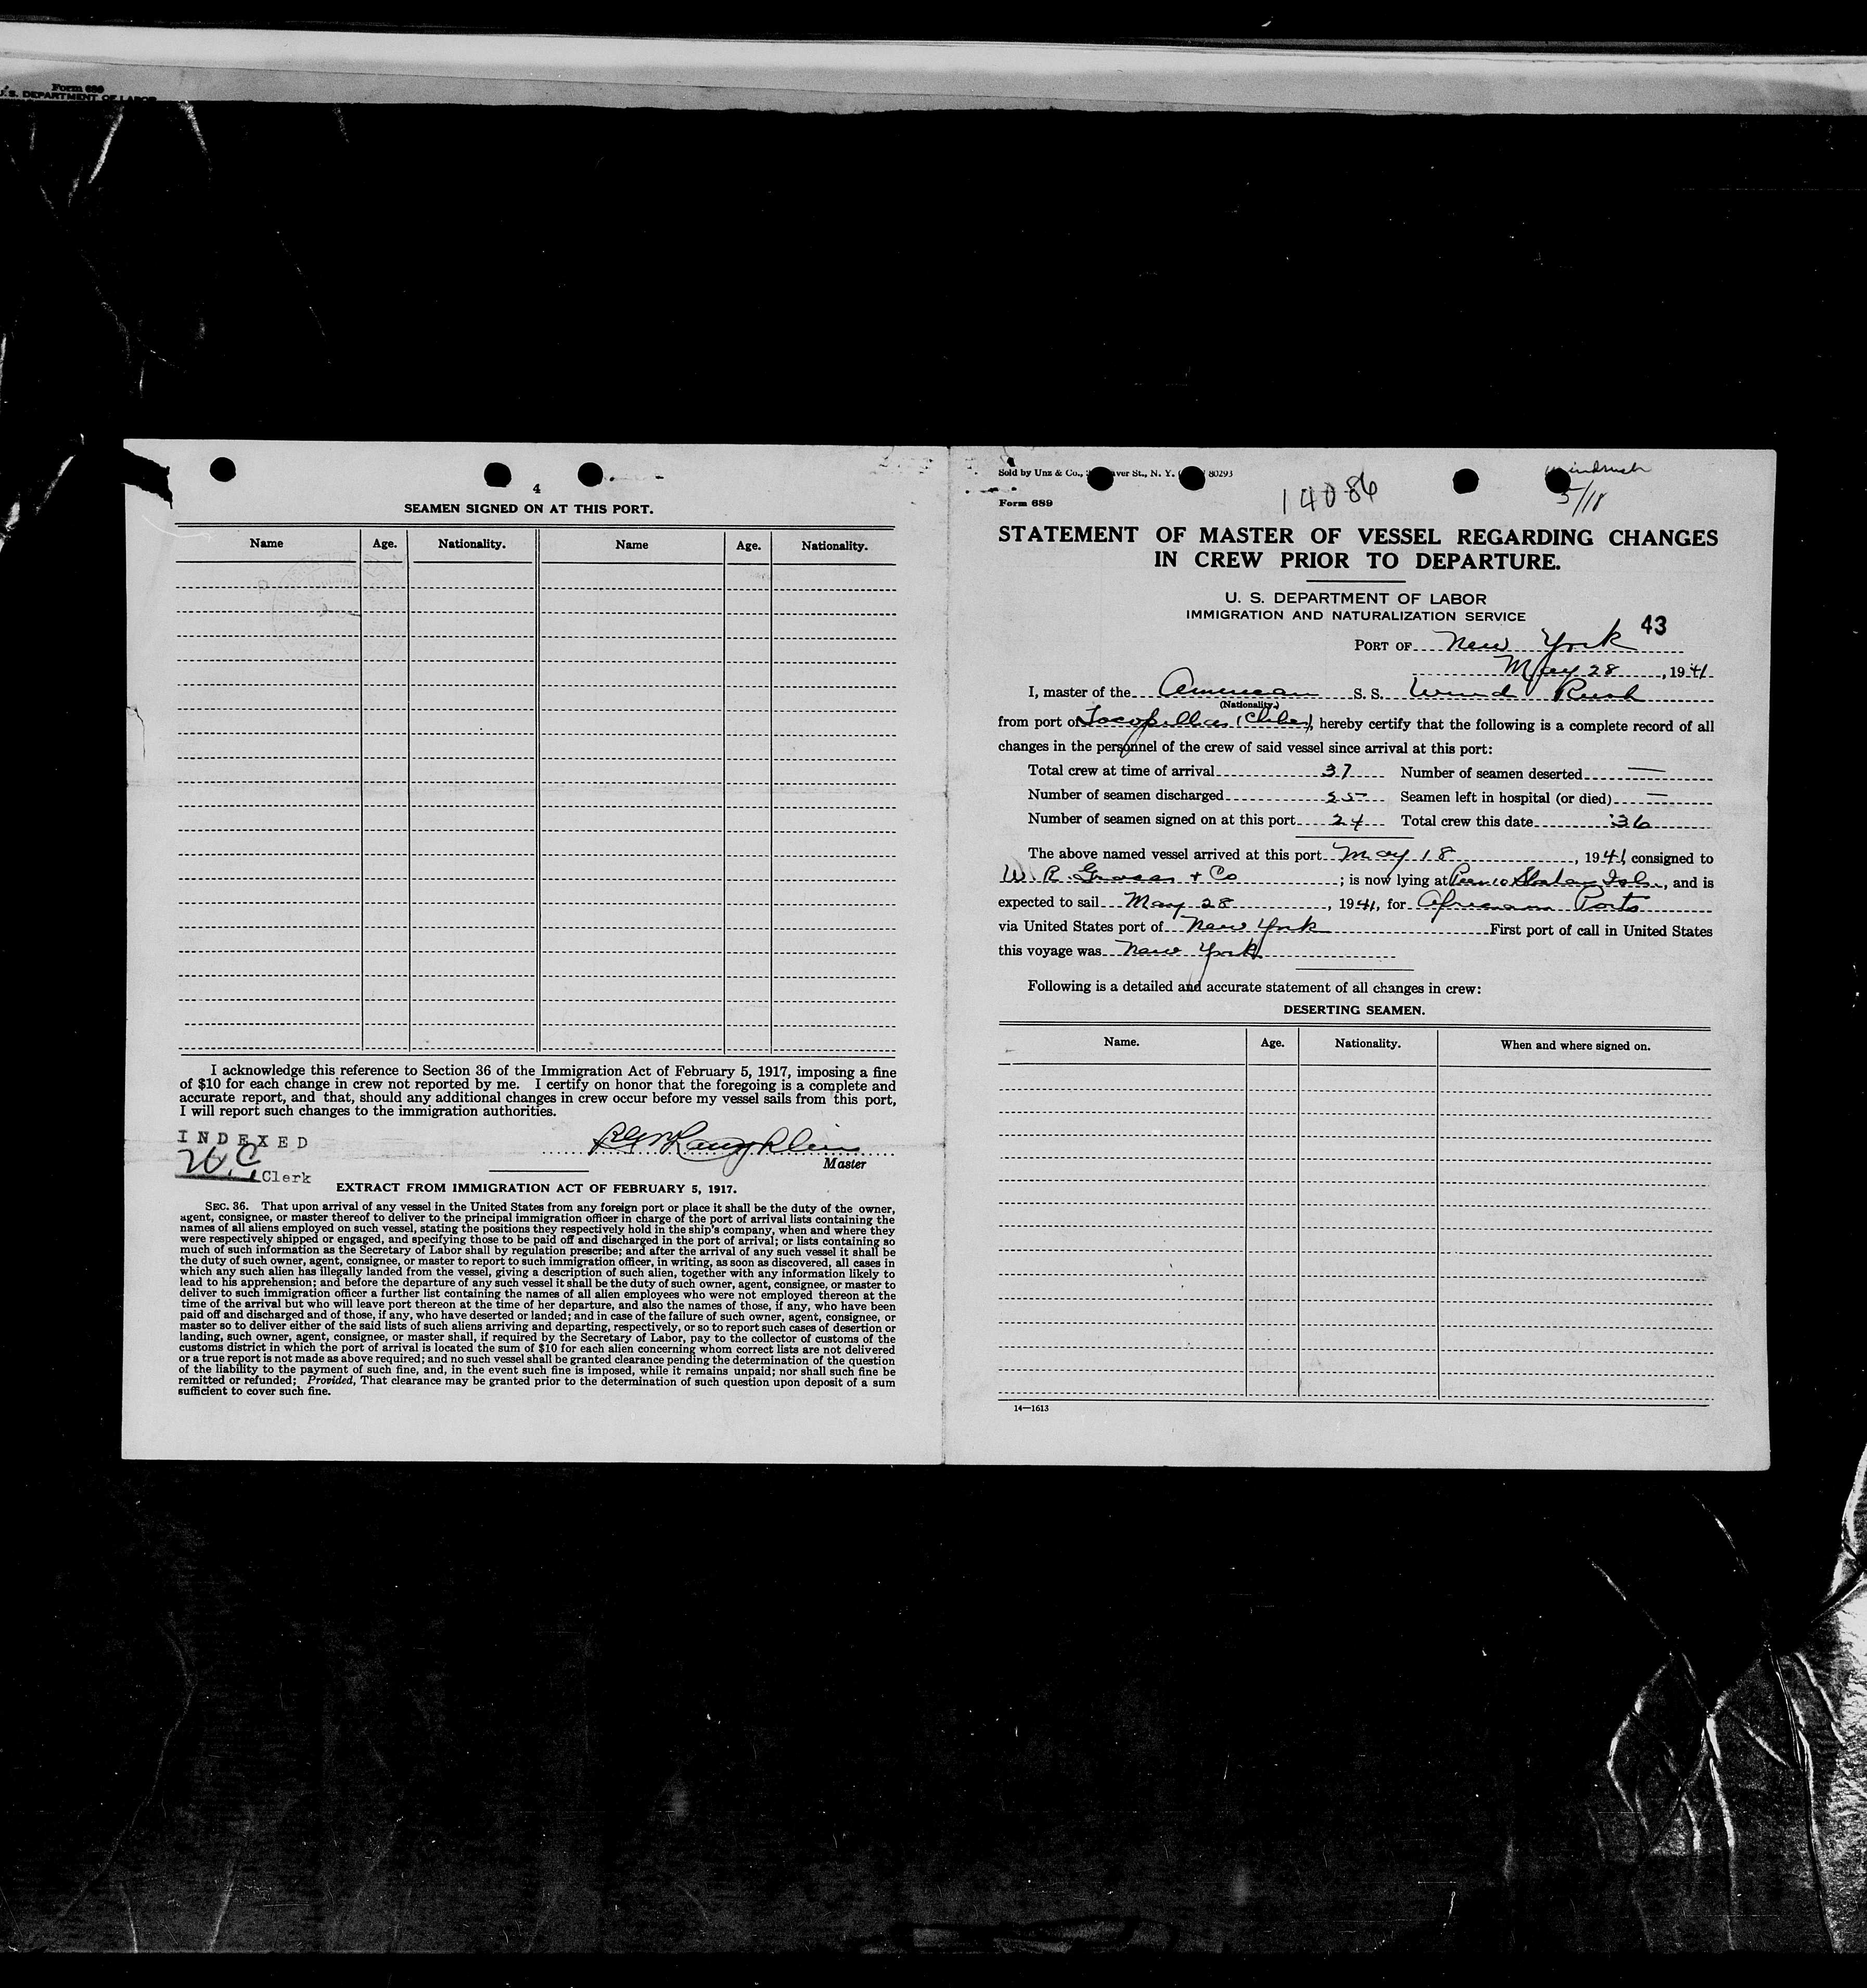 Form 689
U.S. DEPARTMENT OF LABOR
4
SEAMEN SIGNED ON AT THIS PORT.
Name Age. Nationality. Name Age. Nationality.
I acknowledge this reference to Section 36 of the Immigration Act of February 5, 1917, imposing a fine
of $10 for each change in crew not reported by me. I certify on honor that the foregoing is a complete and
accurate report, and that, should any additional changes in crew occur before my vessel sails from this port,
I will report such changes to the immigration authorities.
INDEXED
Clerk
Master
EXTRACT FROM IMMIGRATION ACT OF FEBRUARY 5, 1917.
SEC. 36. That upon arrival of any vessel in the United States from any foreign port or place it shall be the duty of the owner,
agent, consignee, or master thereof to deliver to the principal immigration officer in charge of the port of arrival lists containing the
names of all aliens employed on such vessel, stating the positions they respectively hold in the ship's company, when and where they
were respectively shipped or engaged, and specifying those to be paid off and discharged in the port of arrival; or lists containing so
much of such information as the Secretary of Labor shall by regulation prescribe; and after the arrival of any such vessel it shall be
the duty of such owner, agent, consignee, or master to report to such immigration officer, in writing, as soon as discovered, all cases in
which any such alien has illegally landed from the vessel, giving a description of such alien, together with any information likely to
lead to his apprehension; and before the departure of any such vessel it shall be the duty of such owner, agent, consignee, or master to
deliver to such immigration officer a further list containing the names of all alien employees who were not employed thereon at the
time of the arrival but who will leave port thereon at the time of her departure, and also the names of those, if any, who have been
paid off and discharged and of those, if any, who have deserted or landed; and in case of the failure of such owner, agent, consignee, or
master so to deliver either of the said lists of such aliens arriving and departing, respectively, or so to report such cases of desertion or
landing, such owner, agent, consignee, or master shall, if required by the Secretary of Labor, pay to the collector of customs of the
customs district in which the port of arrival is located the sum of $10 for each alien concerning whom correct lists are not delivered
or a true report is not made as above required; and no such vessel shall be granted clearance pending the determination of the question
of the liability to the payment of such fine, and, in the event such fine is imposed, while it remains unpaid; nor shall such fine be
remitted or refunded; Provided, That clearance may be granted prior to the determination of such question upon deposit of a sum
sufficient to cover such fine.
Sold by Unz & Co., St., N. Y. 80293
Windrush
5/18
14086
Form 689
STATEMENT OF MASTER OF VESSEL REGARDING CHANGES
IN CREW PRIOR TO DEPARTURE.
U. S. DEPARTMENT OF LABOR
IMMIGRATION AND NATURALIZATION SERVICE
43
PORT OF New York
May 28, 1941
I, master of the American S. S. Wind Rush
(Nationality.)
from port of Tocopilla (Chile), hereby certify that the following is a complete record of all
changes in the personnel of the crew of said vessel since arrival at this port:
Total crew at time of arrival 37 Number of seamen deserted —
Number of seamen discharged Seamen left in hospital (or died) —
Number of seamen signed on at this port 24 Total crew this date 36
The above named vessel arrived at this port May 18, 1941, consigned to
W. R. Grace + Co; is now lying at, and is
expected to sail May 28, 1941, for African Ports
via United States port of New York First port of call in United States
this voyage was New York
Following is a detailed and accurate statement of all changes in crew:
DESERTING SEAMEN.
Name. Age. Nationality. When and where signed on.
14—1613